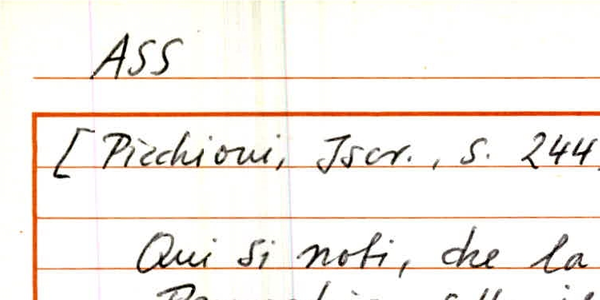 ASS
[Picchioni, Iscr., s. 244
Qui si noti, che la